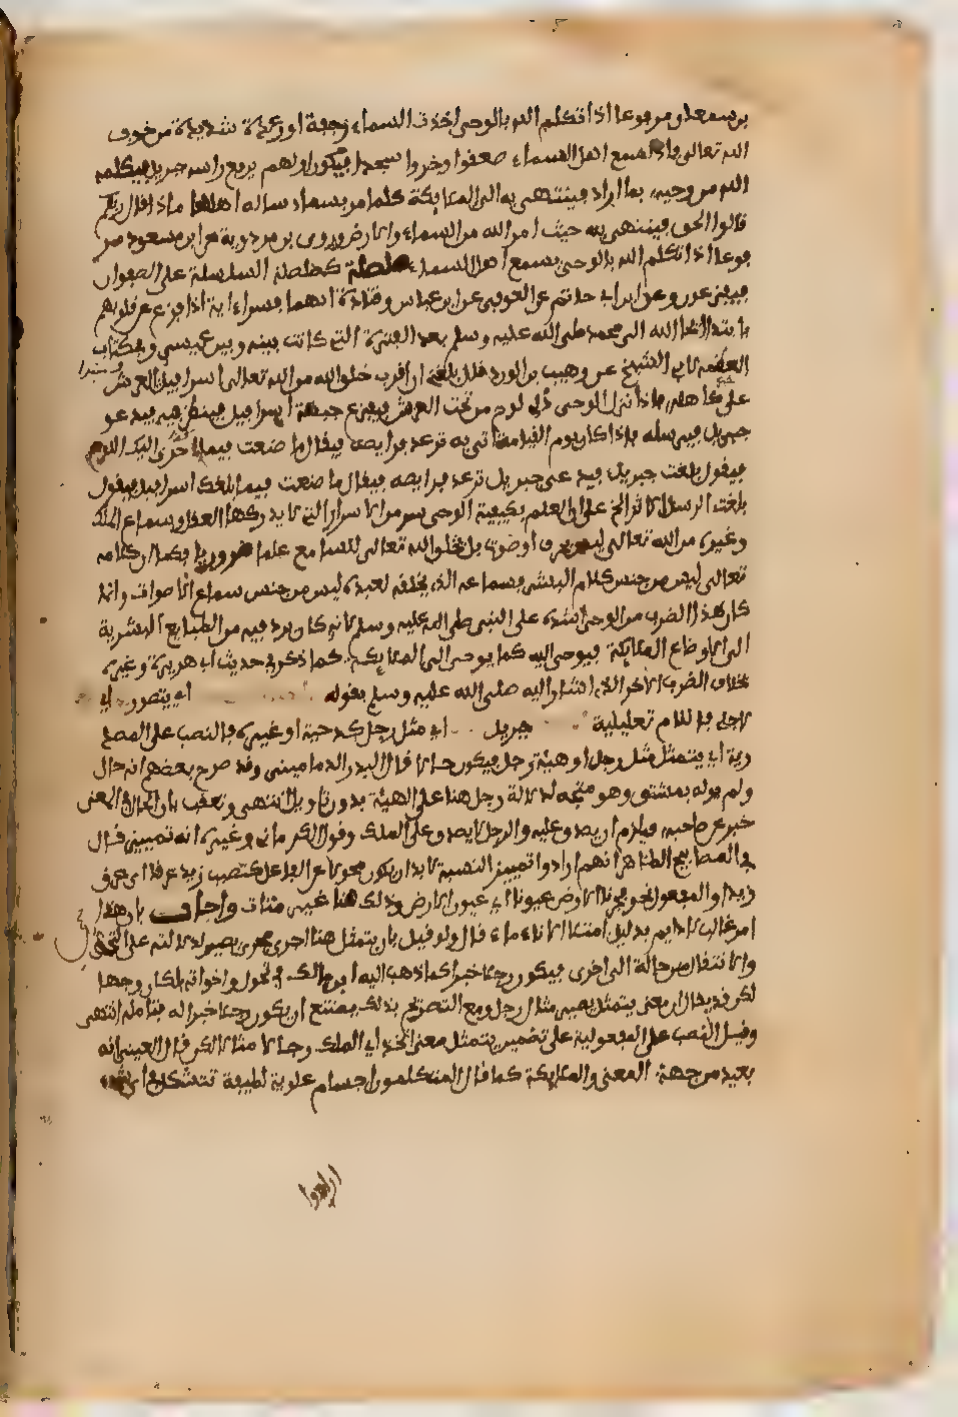 بن سمعان مرفوعا اذا تكلم الله بالوحي اخذت السماء رجفة او رعدة شديدة من خوف
الله تعالى فاذا سمع اهل السماء صعقوا وخروا سجدا فيكون اولهم يرفع راسه جبريل فيكلمه
الله من وحيه بما اراد فينتهي به الى الملايكة كلما مر بسماء ساله اهلها ماذا قال ربكم
قالوا الحق فينتهي به حيث امر الله من السماء والارض وروى بن مردوية عن ابن مسعود مر
فوعا اذا تكلم الله بالوحي يسمع اهل السماء صلصلة كصلصلة السلسلة على الصفوان
فيفزعون وعن ابن ابي حاتم عن العوفي عن ابن عباس وقتادة انهما فسرا اية اذا فزع عن قلوبهم
بابتداء ايحا الله الى محمد صلى الله عليه وسلم بعد الفترة التي كانت بينه وبين عيسى وفي كتاب
العظمة لابي الشيخ عن وهيب بن الورد قال بلغني ان اقرب خلق الله من الله تعالى اسرافيل العرش
على كاهله فاذا نزل الوحي دلي لوح من تحت العرش فيقرع جبهة اسرافيل فينظر فيه فيدعو
جبريل فيرسله فاذا كان يوم القيامة اتي به ترعد فرايصه فيقال ما صنعت فيما ادى اليك اللوح
فيقول بلغت جبريل فيدعى جبريل ترعد فرايصه فيقال ما صنعت فيما بلغك اسرافيل فيقول
بلغت الرسل الاثر الخ على ان العلم بكيفية الوحي سر من الاسرار التي لا يدركها العقل وسماع الملك
وغيره من الله تعالى ليس بحرف او صوت بل يخلق الله تعالى للسامع علما ضروريا فكما ان كلامه
تعالى ليس من جنس كلام البشر فسماعه الذي يخلقه لعبده ليس من جنس سماع الاصوات وانما
كان هذا الضرب من الوحي اشده على النبي صلى الله عليه وسلم لانه كان يرد فيه من الطبايع البشرية
الى الاوضاع الملايكة فيوحى اليه كما يوحى الى الملايكة كما ذكر في حديث ابي هريرة وغيره
بخلاف الضرب الاخر الذي اشار اليه صلى الله عليه وسلم بقوله اي يتصور اي
لاجلي فاللام تعليلية جبريل اي مثل رجل كدحية او غيره فالنصب على المصد
رية اي يتمثل مثل رجل او هيئة رجل فيكون حالا قال البدر الدماميني وقد صرح بعضهم انه حال
ولم يوله بمشتق وهو متجه لدلالة رجل هنا على الهيئة بدون تاويل انتهى وتعقب بان الحال في المعنى
خبر عن صاحبه فيلزم ان يصدق عليه والرجل لا يصدق على الملك وقول الكرماني وغيره انه تمييز قال
في المصابيح الظاهر انهم ارادوا تمييز النسبة لا بد ان يكون محولا عن الفاعل كتصبب زيد عرقا اي عرق
زيد او المفعول نحو فجرنا الارض عيونا اي عيون الارض وذلك هنا غير متات واجاب بان هذا
امر غالب لا دايم بدليل امتلا الاناء ماء قال ولو قيل بان يتمثل هنا اجري مجرى يصير لدلالته على التحول
والانتقال من حالة الى اخرى فيكون رجلا خبرا كما ذهب اليه ابن مالك في تحول واخواته لكان وجها
لكن قد يقال ان معنى يتمثل يصير مثال رجل ومع التصريح بذلك يمتنع ان يكون رجلا خبرا له فتامله انتهى
وقيل النصب على المفعولية على تضمين يتمثل معنى يتخذ اي الملك رجلا مثالا لكن قال العيني انه
بعيد من جهة المعنى والملايكة كما قال المتكلمون اجسام علوية لطيفة تتشكل في اي شكل
ارادوا